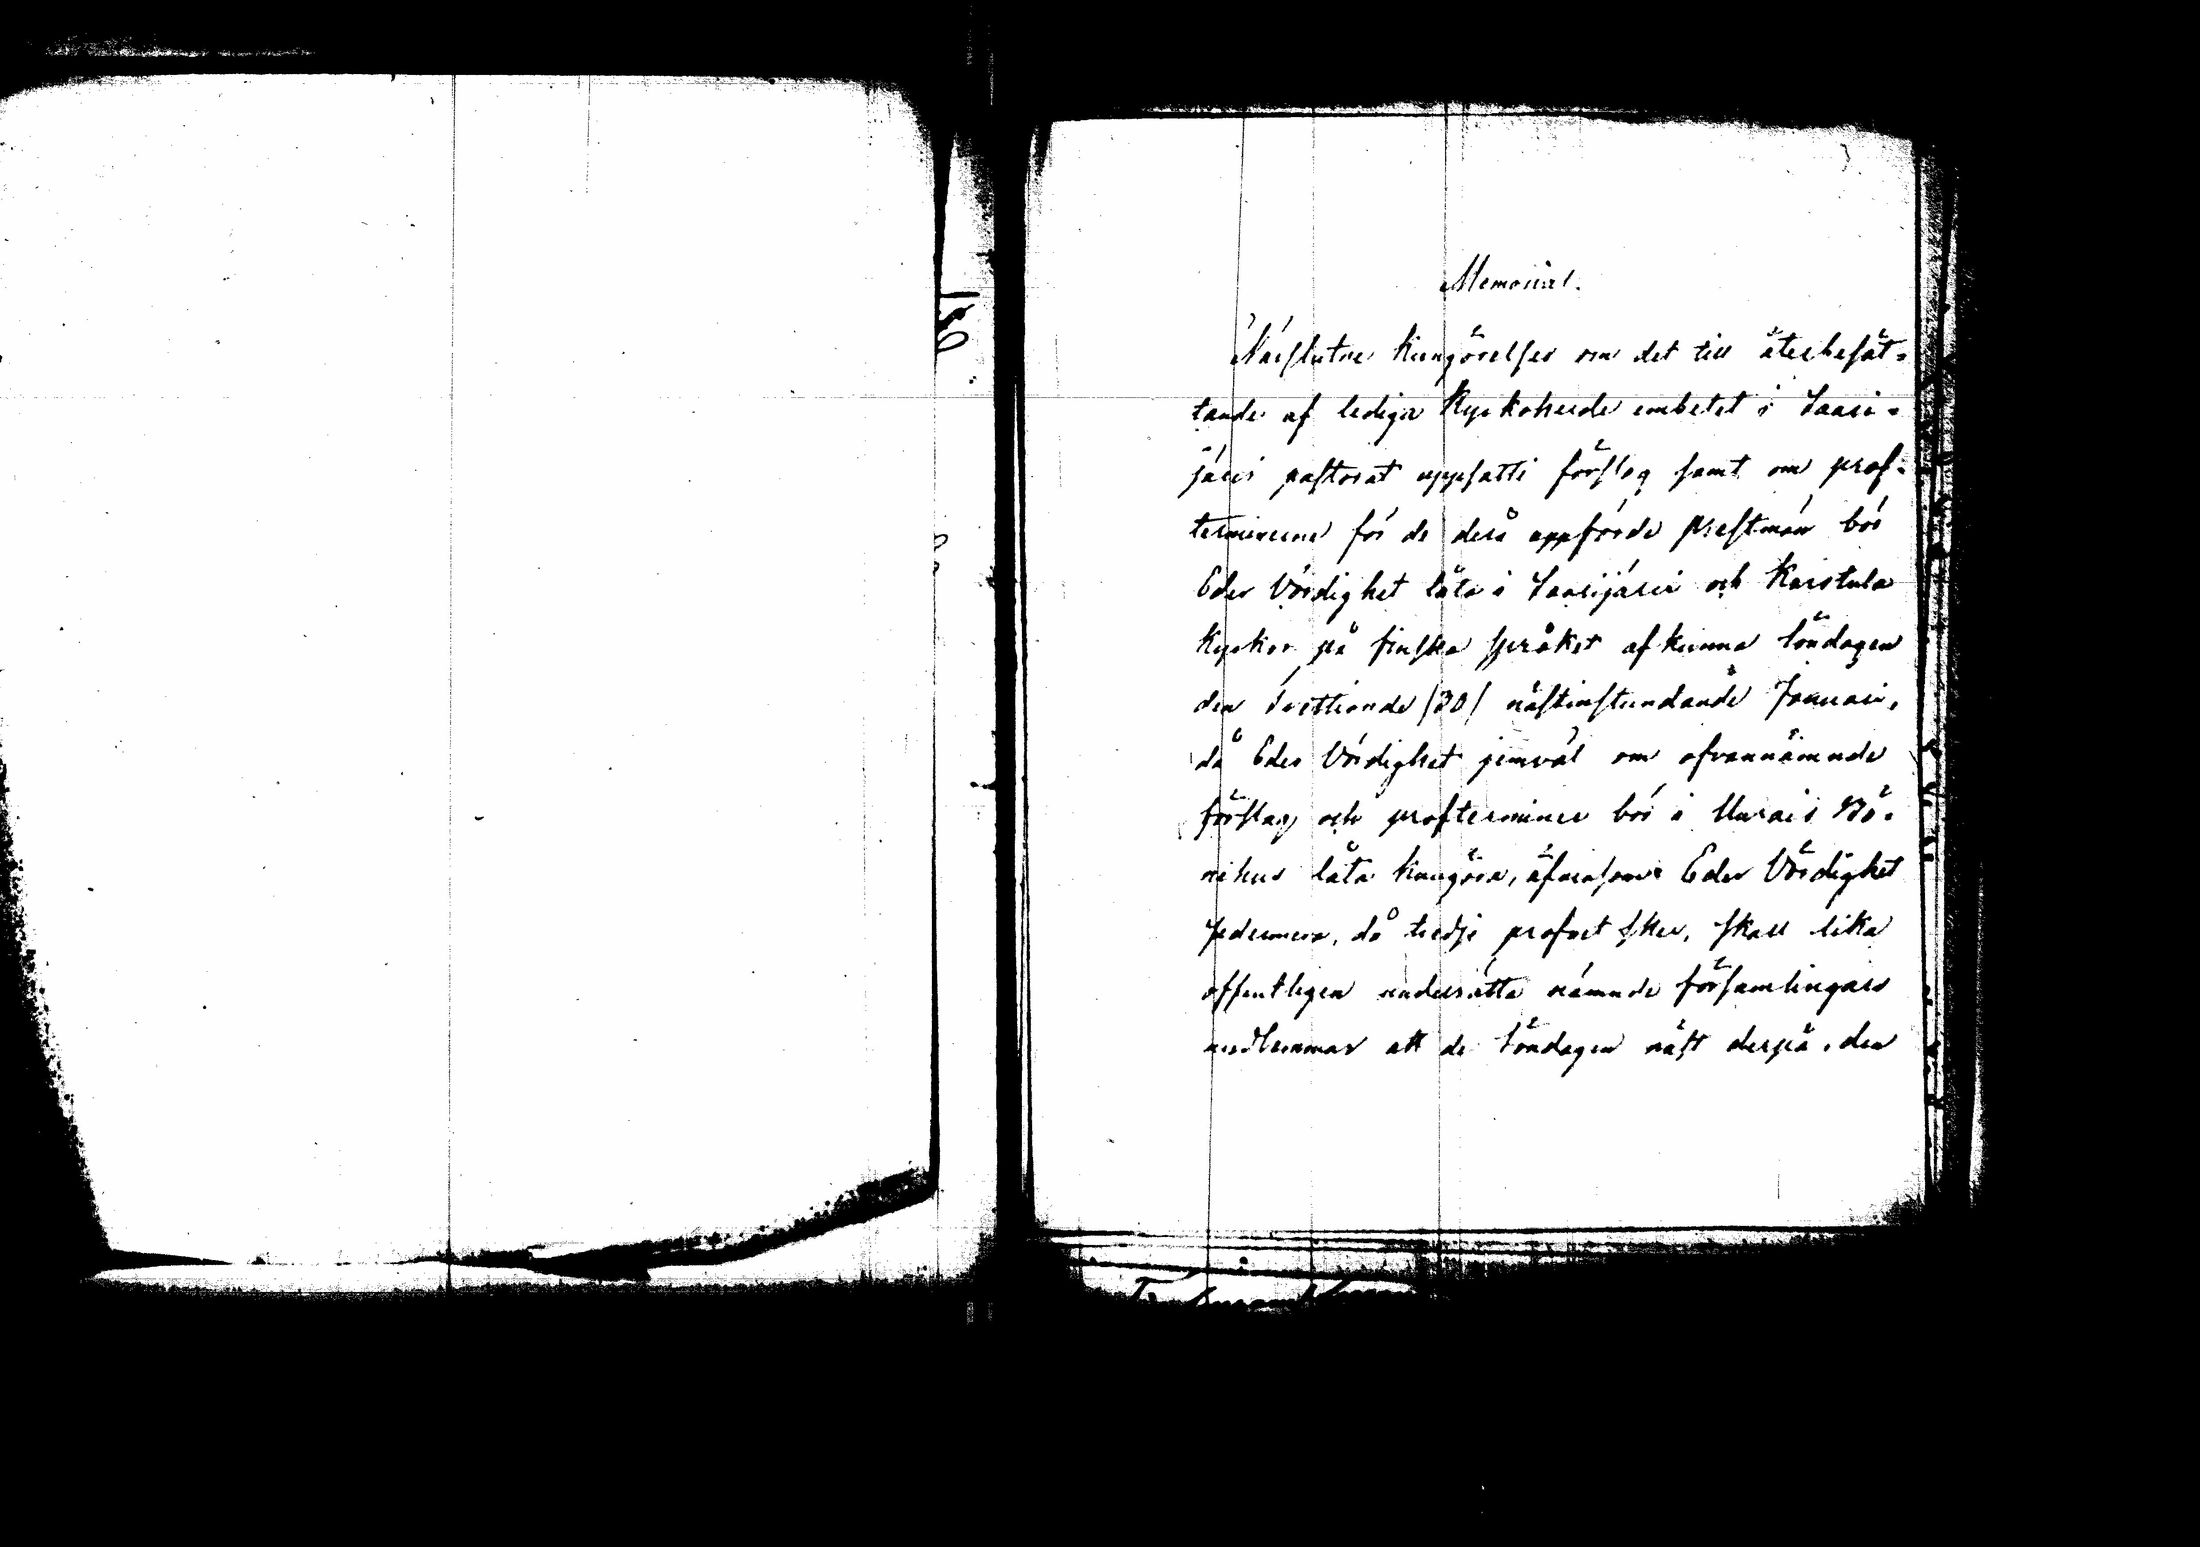 Memorial.
Närslutne Kungörelser om det till återbesät-
tande af lediga Kyrkoherde embetet i Saari-
järvi pastorat uppsatte förslag samt om prof-
terminerne för de derå uppförde Prestmän bör
Eder Vördighet låta i Saarijärvi och Karstula
Kyrkor på finska språket afkunna Söndagen
den trettionde /30/ nästinstundande Januari,
då Eder Vördighet jemväl om ofvannämnde
förslag och profterminer bör i Uurais Bö-
nehus låta kungöra, äfvensom Eder Vördighet
sedermera, då tredje profvet sker, skall lika
offentligen underrätta nämnde församlingars
medlemmar att de Söndagen näst derpå, den